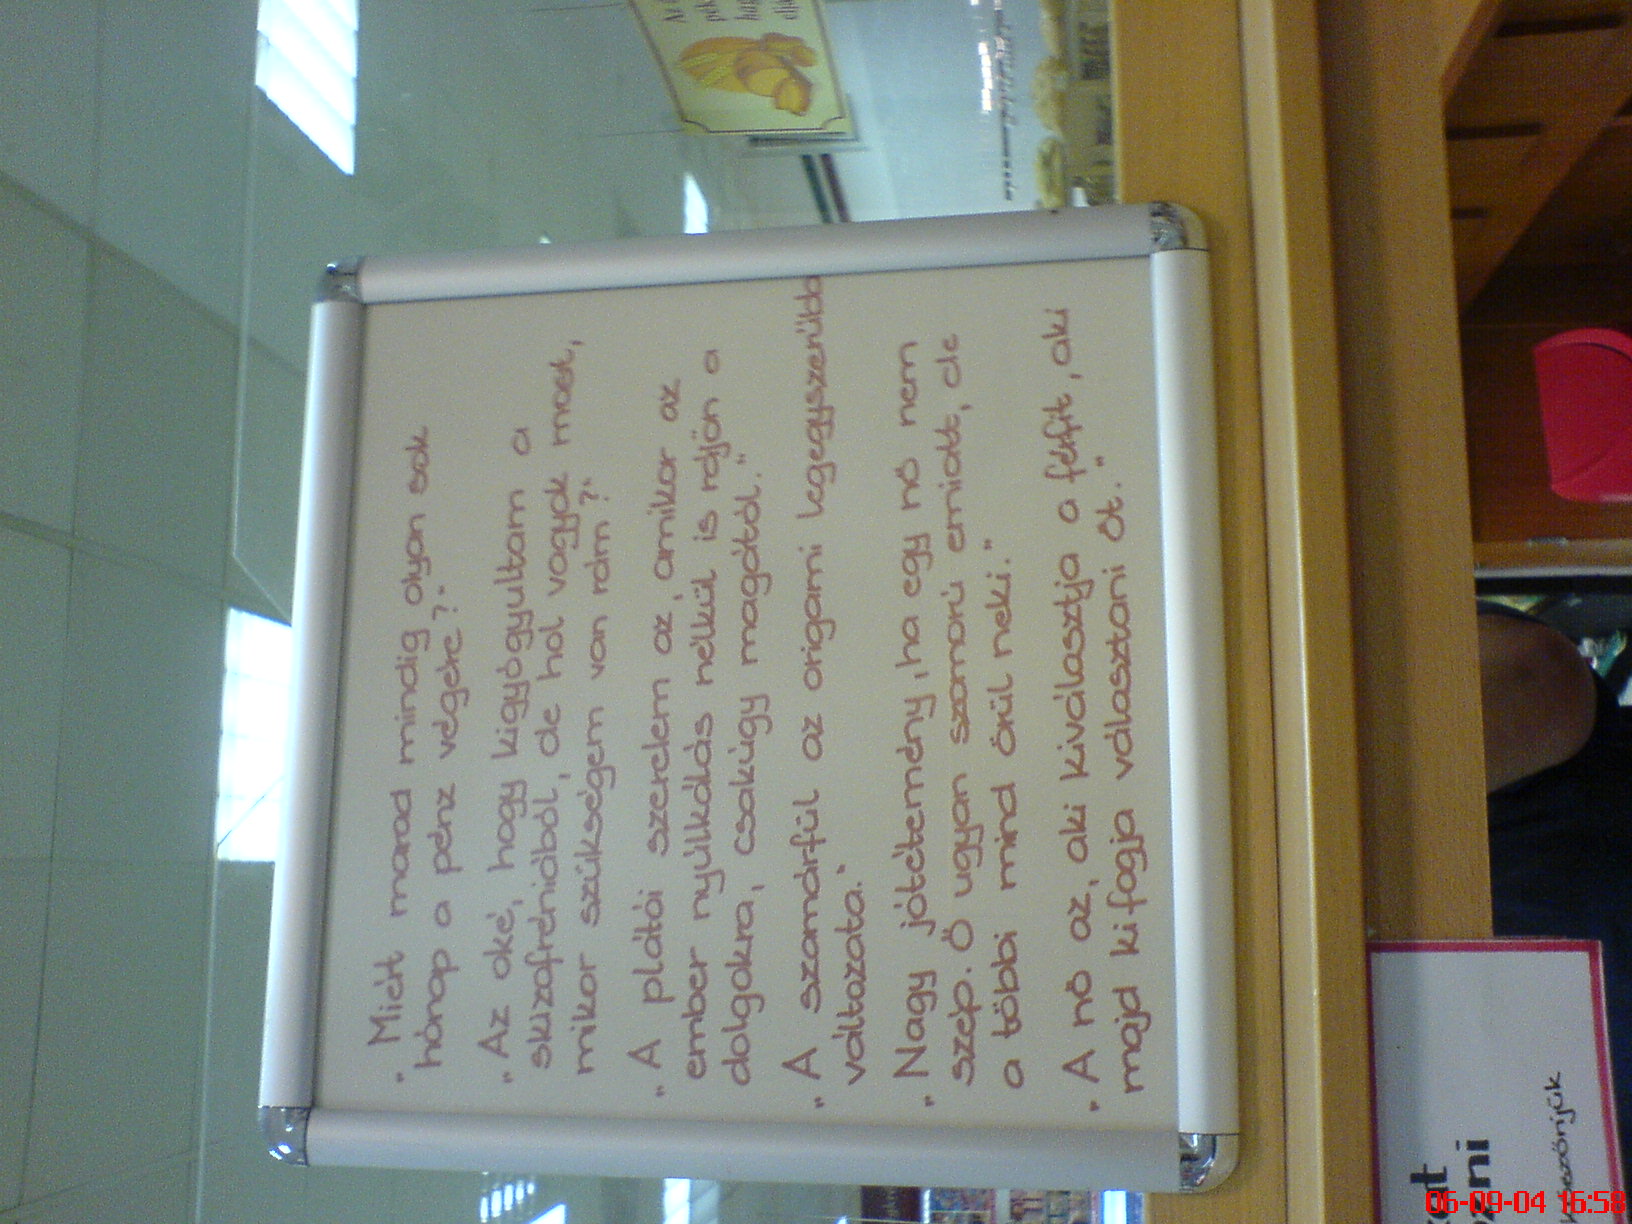 "Miért marad mindig olyan sok
hónap a pénz végére?"
"Az oké, hogy kigyógyultam a
skizofréniából, de hol vagyok most,
mikor szükségem van rám?"
"A plátói szerelem az, amikor az
ember nyúlkálás nélkül is rájön a
dolgokra, csakúgy magától."
"A szamárfül az origami legegyszerűbb
változata."
"Nagy jótétemény, ha egy nő nem
szép. Ő ugyan szomorú emiatt, de
a többi mind örül neki."
"A nő az, aki kiválasztja a férfit, aki
majd ki fogja választani őt."
06-09-04 16:58